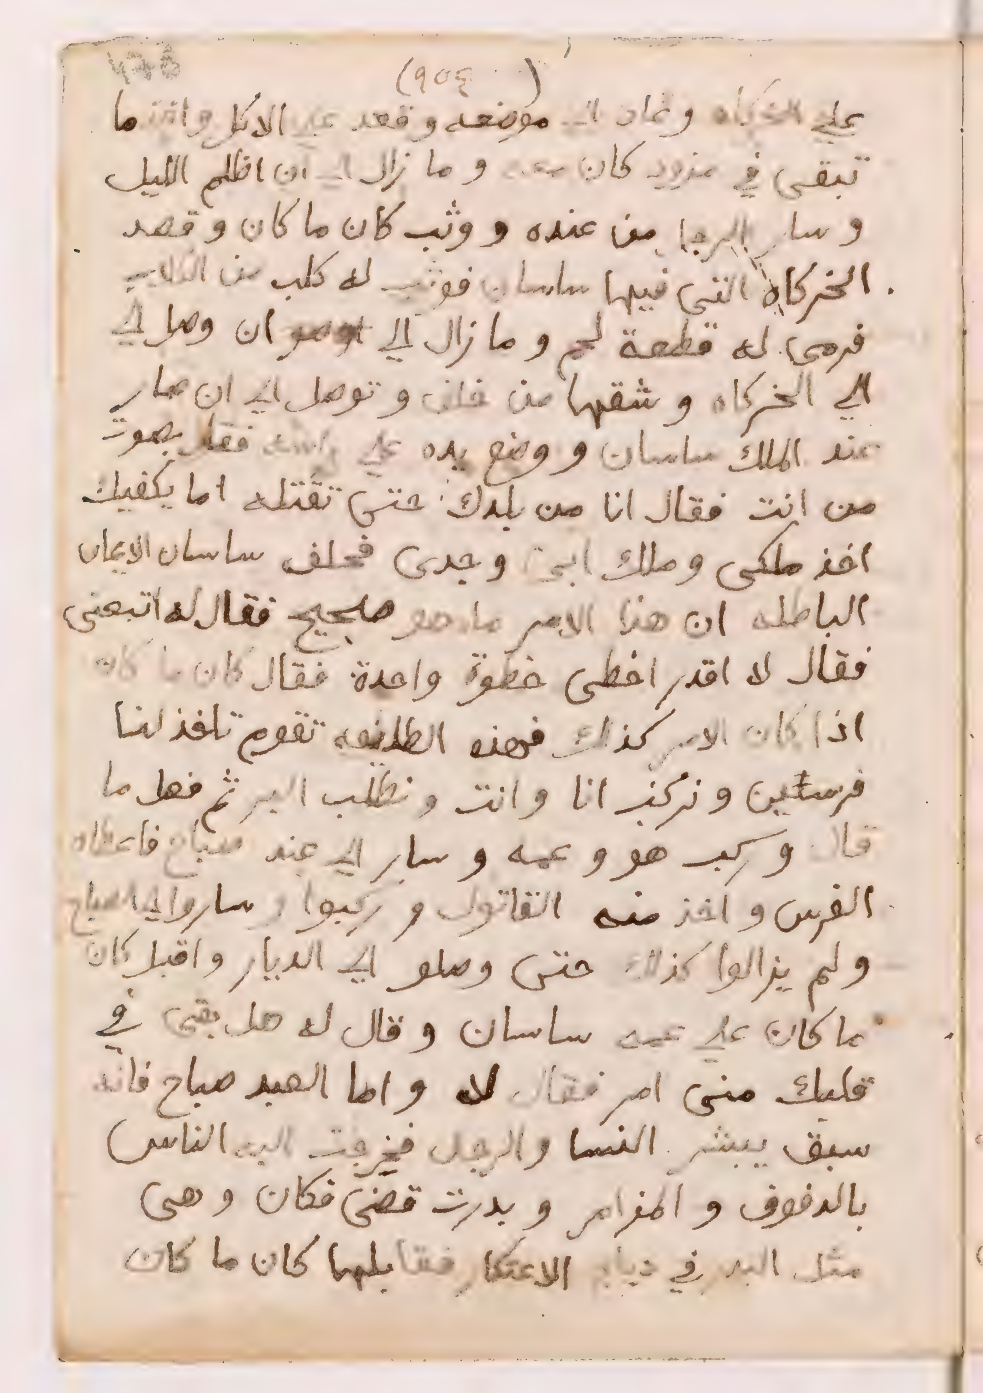 (٩٠٤)
علي الخركاه وعاد الي موضعه وقعد علي الاكل واخذ ما
تبقى في مزود كان معه و ما زال الي ان اظلم الليل
و سار الرجا من عنده و وثب كان ما كان و قصد
الخركاه التى فيها ساسان فوثب له كلب من الكلاب
فرمى له قطعة لحم و ما زال الي ان وصل الي
الي الخركاه و شقها من خلف و توصل الي ان صار
عند الملك ساسان و وضع يده علي راسه فقال بصوت
من انت فقال انا من بلدك حتى تقتله اما يكفيك
اخذ ملكى وملك ابى وجدى فحلف ساسان الايمان
الباطله ان هذا الامر ما هو صحيح فقال له اتبعنى
فقال لا اقدر اخطى خطوة واحدة فقال كان ما كان
اذا كان الامر كذلك فهذه تقوم تاخذ لنا
فرستين و نركب انا وانت و نطلب البر ثم فعل ما
قال و ركب هو و عمه و سار الي عند صباح فاعطاه
الفرس و اخذ منه القاتول و ركبوا و ساروا الي الصباح
ولم يزالوا كذلك حتى وصلو الي الديار واقبل كان
ما كان علي عمه ساسان و قال له هل بقى في
قلبك منى امر فقال لا و اما العبد صباح فانه
سبق يبشر النسا والرجل فخرجت اليه الناس
بالدفوف و المزامر و بدرت قضى فكان و هى
مثل البدر في دياج الاعتكار فقابلها كان ما كان